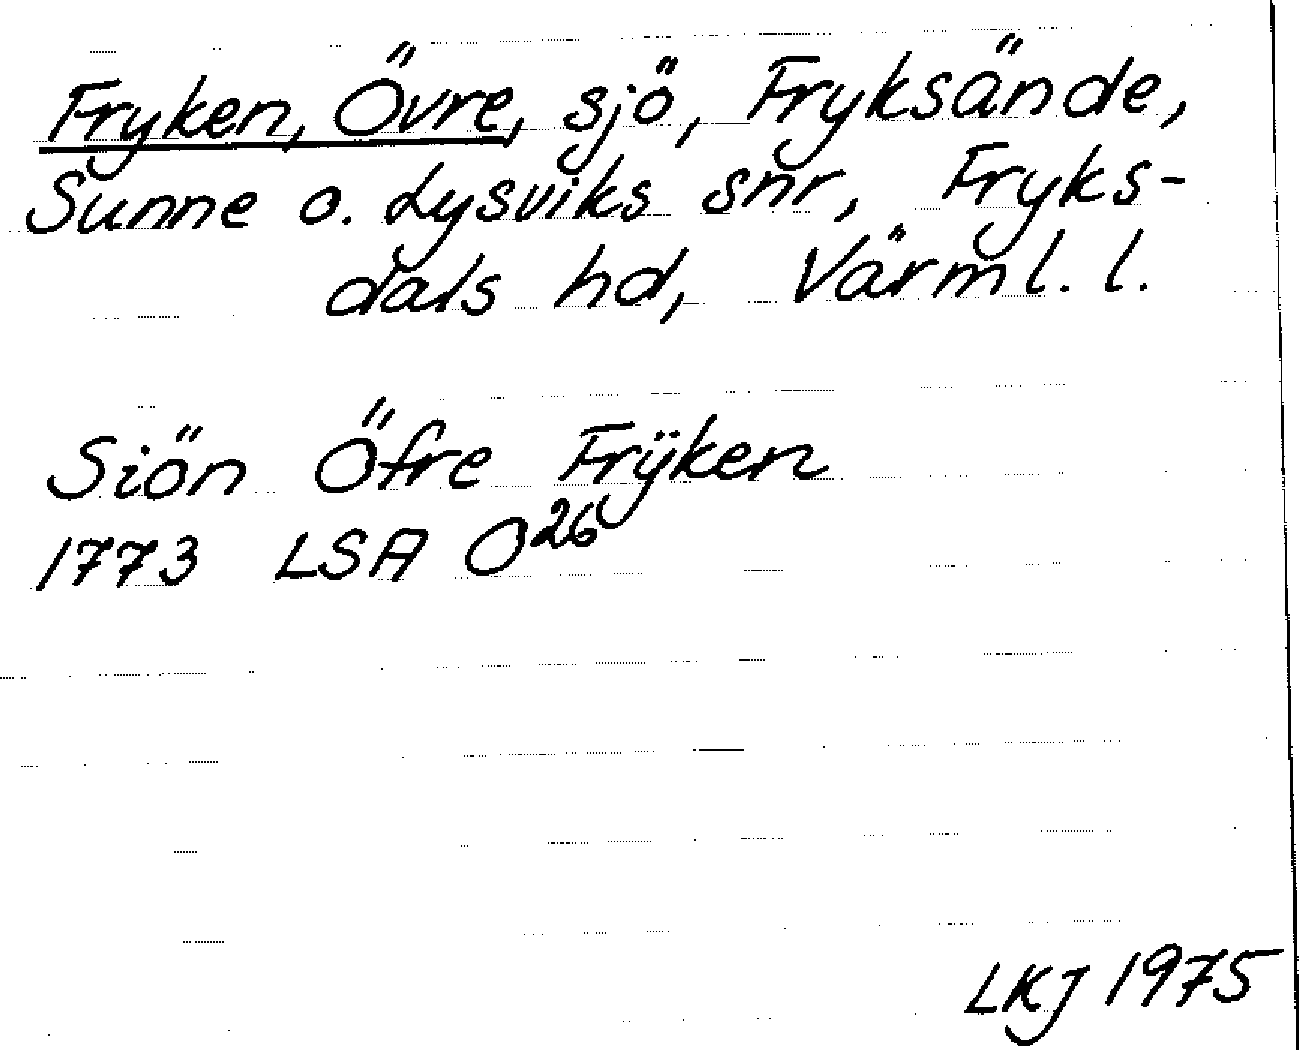 Fryken, Övre, sjö, Fryksände,
Sunne o. Lysviks snr, Fryks-
dals hd, Värml. l.
Siön Öfre Frÿken
1773 LSA O26
LKJ 1975